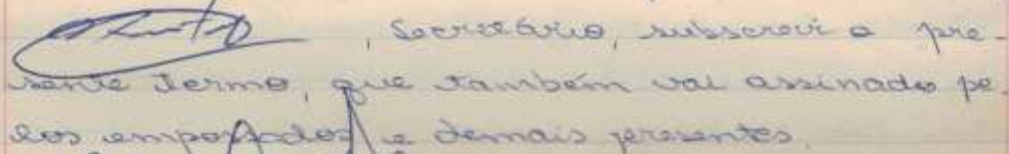 , Secretário, subscrevi o pre-
sente termo, que também vai assinado pe-
los empossados e demais presentes.